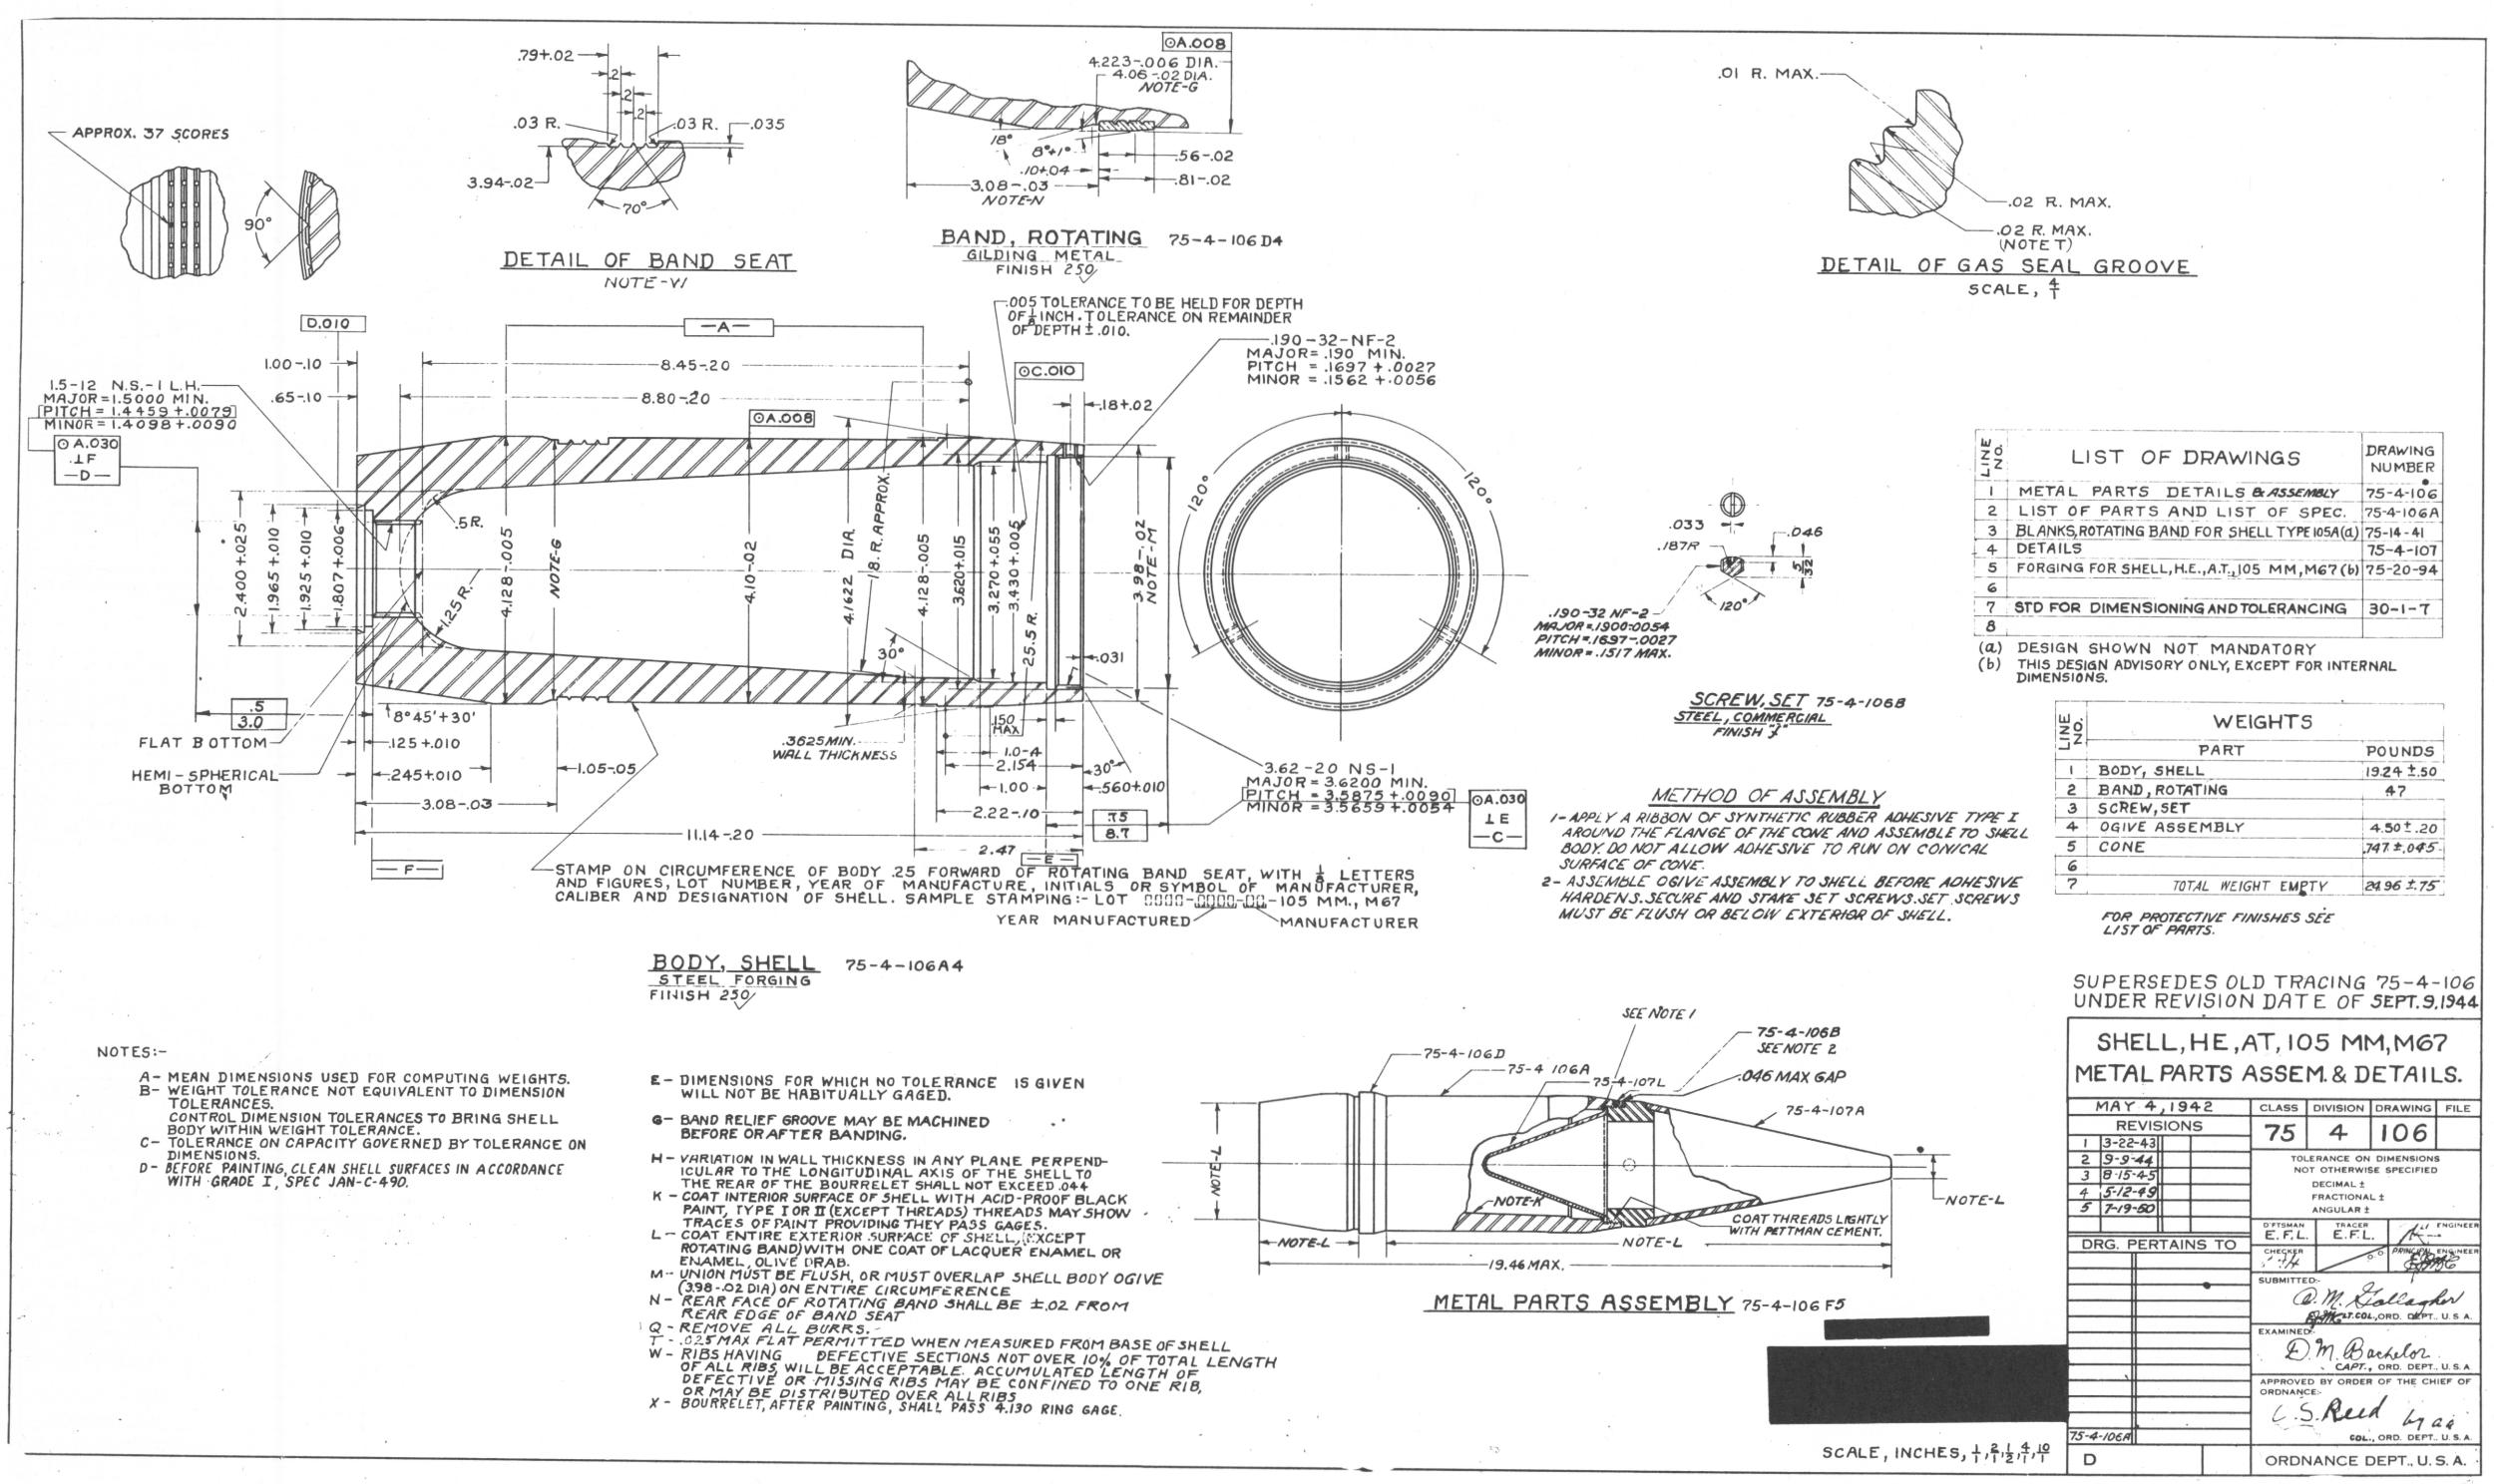 .79+.02
.2
.2
.2
.03 R.
.03 R.
.035
3.94-.02
70°
DETAIL OF BAND SEAT
NOTE-W
APPROX. 37 SCORES
90°
⊙A.008
4.223-.006 DIA.
4.06-.02 DIA.
NOTE-G
18°
8°+1°
.10+.04
.56-.02
.81-.02
3.08-.03
NOTE-N
BAND, ROTATING 75-4-106D4
GILDING METAL
FINISH 250
.01 R. MAX.
.02 R. MAX.
.02 R. MAX.
(NOTE T)
DETAIL OF GAS SEAL GROOVE
SCALE, 4/1
D.010
-A-
.005 TOLERANCE TO BE HELD FOR DEPTH
OF 1/8 INCH. TOLERANCE ON REMAINDER
OF DEPTH ±.010.
1.00-.10
8.45-.20
.65-.10
8.80-.20
⊙A.008
⊙C.010
.18+.02
.190-32-NF-2
MAJOR=.190 MIN.
PITCH = .1697+.0027
MINOR = .1562+.0056
1.5-12 N.S.-1 L.H.
MAJOR=1.5000 MIN.
PITCH=1.4459+.0079
MINOR=1.4098+.0090
⊙A.030
⊥F
-D-
2.400+.025
1.965+.010
1.925+.010
1.807+.006
.5R.
1.25R.
4.128-.005
NOTE-G
4.10-.02
4.1622 DIA
18.R.APPROX.
4.128-.005
3.620+.015
3.270+.055
3.430+.005
25.5 R.
3.98-.02
NOTE-M
30°
.031
120°
120°
.5
3.0
FLAT BOTTOM
HEMI-SPHERICAL
BOTTOM
8°45'+30'
.125+.010
.245+.010
1.05-.05
3.08-.03
11.14-.20
-F-
.3625MIN.
WALL THICKNESS
.150
MAX
1.0-.4
2.154
1.00
2.22-.10
2.47
-E-
30°
.560+.010
.75
8.7
3.62-20 NS-1
MAJOR = 3.6200 MIN.
PITCH = 3.5875+.0090
MINOR = 3.5659+.0054
⊙A.030
⊥E
-C-
STAMP ON CIRCUMFERENCE OF BODY .25 FORWARD OF ROTATING BAND SEAT, WITH 1/8 LETTERS
AND FIGURES, LOT NUMBER, YEAR OF MANUFACTURE, INITIALS OR SYMBOL OF MANUFACTURER,
CALIBER AND DESIGNATION OF SHELL. SAMPLE STAMPING:- LOT 0000-0000-00-105 MM., M67
YEAR MANUFACTURED
MANUFACTURER
BODY, SHELL 75-4-106A4
STEEL FORGING
FINISH 250
.033
.187R
.046
5/32
120°
.190-32 NF-2
MAJOR=.1900-.0054
PITCH=.1697-.0027
MINOR=.1517 MAX.
SCREW, SET 75-4-106B
STEEL, COMMERCIAL
FINISH
METHOD OF ASSEMBLY
1- APPLY A RIBBON OF SYNTHETIC RUBBER ADHESIVE TYPE I
AROUND THE FLANGE OF THE CONE AND ASSEMBLE TO SHELL
BODY. DO NOT ALLOW ADHESIVE TO RUN ON CONICAL
SURFACE OF CONE.
2- ASSEMBLE OGIVE ASSEMBLY TO SHELL BEFORE ADHESIVE
HARDENS. SECURE AND STAKE SET SCREWS. SET SCREWS
MUST BE FLUSH OR BELOW EXTERIOR OF SHELL.
LINE NO. LIST OF DRAWINGS DRAWING NUMBER
1 METAL PARTS DETAILS & ASSEMBLY 75-4-106
2 LIST OF PARTS AND LIST OF SPEC. 75-4-106A
3 BLANKS, ROTATING BAND FOR SHELL TYPE 105A(a) 75-14-41
4 DETAILS 75-4-107
5 FORGING FOR SHELL, H.E., A.T., 105 MM, M67 (b) 75-20-94
6
7 STD FOR DIMENSIONING AND TOLERANCING 30-1-7
8
(a) DESIGN SHOWN NOT MANDATORY
(b) THIS DESIGN ADVISORY ONLY, EXCEPT FOR INTERNAL
DIMENSIONS.
LINE NO. WEIGHTS
PART POUNDS
1 BODY, SHELL 19.24 ±.50
2 BAND, ROTATING .47
3 SCREW, SET
4 OGIVE ASSEMBLY 4.50±.20
5 CONE .747±.045
6
7 TOTAL WEIGHT EMPTY 24.96 ±.75
FOR PROTECTIVE FINISHES SEE
LIST OF PARTS.
SUPERSEDES OLD TRACING 75-4-106
UNDER REVISION DATE OF SEPT. 9, 1944
NOTES:-
A- MEAN DIMENSIONS USED FOR COMPUTING WEIGHTS.
B- WEIGHT TOLERANCE NOT EQUIVALENT TO DIMENSION
TOLERANCES.
CONTROL DIMENSION TOLERANCES TO BRING SHELL
BODY WITHIN WEIGHT TOLERANCE.
C- TOLERANCE ON CAPACITY GOVERNED BY TOLERANCE ON
DIMENSIONS.
D- BEFORE PAINTING, CLEAN SHELL SURFACES IN ACCORDANCE
WITH GRADE I, SPEC JAN-C-490.
E- DIMENSIONS FOR WHICH NO TOLERANCE IS GIVEN
WILL NOT BE HABITUALLY GAGED.
G- BAND RELIEF GROOVE MAY BE MACHINED
BEFORE OR AFTER BANDING.
H- VARIATION IN WALL THICKNESS IN ANY PLANE PERPEND-
ICULAR TO THE LONGITUDINAL AXIS OF THE SHELL TO
THE REAR OF THE BOURRELET SHALL NOT EXCEED .044
K- COAT INTERIOR SURFACE OF SHELL WITH ACID-PROOF BLACK
PAINT, TYPE I OR II (EXCEPT THREADS) THREADS MAY SHOW
TRACES OF PAINT PROVIDING THEY PASS GAGES.
L- COAT ENTIRE EXTERIOR SURFACE OF SHELL, (EXCEPT
ROTATING BAND) WITH ONE COAT OF LACQUER ENAMEL OR
ENAMEL, OLIVE DRAB.
M- UNION MUST BE FLUSH, OR MUST OVERLAP SHELL BODY OGIVE
(3.98-.02 DIA) ON ENTIRE CIRCUMFERENCE
N- REAR FACE OF ROTATING BAND SHALL BE ±.02 FROM
REAR EDGE OF BAND SEAT
Q- REMOVE ALL BURRS.
T- .025 MAX FLAT PERMITTED WHEN MEASURED FROM BASE OF SHELL
W- RIBS HAVING DEFECTIVE SECTIONS NOT OVER 10% OF TOTAL LENGTH
OF ALL RIBS, WILL BE ACCEPTABLE. ACCUMULATED LENGTH OF
DEFECTIVE OR MISSING RIBS MAY BE CONFINED TO ONE RIB,
OR MAY BE DISTRIBUTED OVER ALL RIBS
X- BOURRELET, AFTER PAINTING, SHALL PASS 4.130 RING GAGE.
SEE NOTE 1
75-4-106B
SEE NOTE 2
75-4-106D
75-4 106A
75-4-107L
.046 MAX GAP
75-4-107A
NOTE-L
NOTE-K
NOTE-L
COAT THREADS LIGHTLY
WITH PETTMAN CEMENT.
NOTE-L
NOTE-L
19.46 MAX.
METAL PARTS ASSEMBLY 75-4-106 F5
SCALE, INCHES, 1/1, 2/1, 1/2, 4/1, 10/1
SHELL, HE, AT, 105 MM, M67
METAL PARTS ASSEM. & DETAILS.
MAY 4, 1942
REVISIONS
1 3-22-43
2 9-9-44
3 8-15-45
4 5-12-49
5 7-19-50
DRG. PERTAINS TO
75-4-106A
D
CLASS DIVISION DRAWING FILE
75 4 106
TOLERANCE ON DIMENSIONS
NOT OTHERWISE SPECIFIED
DECIMAL ±
FRACTIONAL ±
ANGULAR ±
D'FTSMAN TRACER ENGINEER
E.F.L. E.F.L.
CHECKER PRINCIPAL ENGINEER
SUBMITTED:-
M. Gallagher
LT. COL., ORD. DEPT., U.S.A.
EXAMINED:-
D. M. Bachelor
CAPT., ORD. DEPT., U.S.A
APPROVED BY ORDER OF THE CHIEF OF
ORDNANCE:-
C. S. Reed by
COL., ORD. DEPT., U.S.A.
ORDNANCE DEPT., U.S.A.